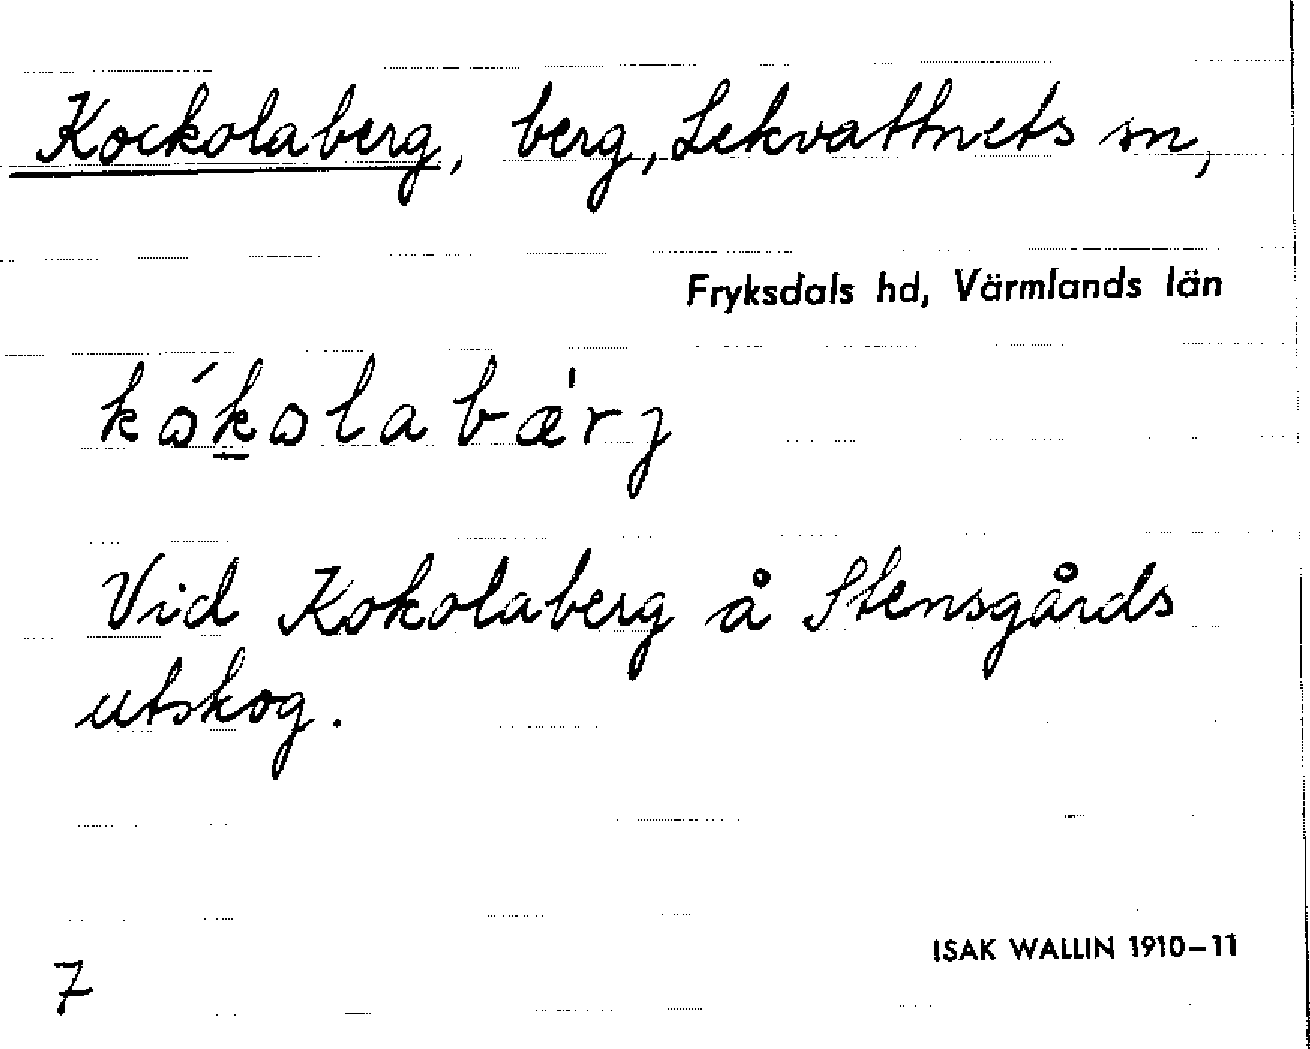 Kockolaberg, berg, Lekvattnets sn,
Fryksdals hd, Värmlands län
kókolabæ'rj
Vid Kokolaberg å Stensgårds
utskog.
ISAK WALLIN 1910–11
7